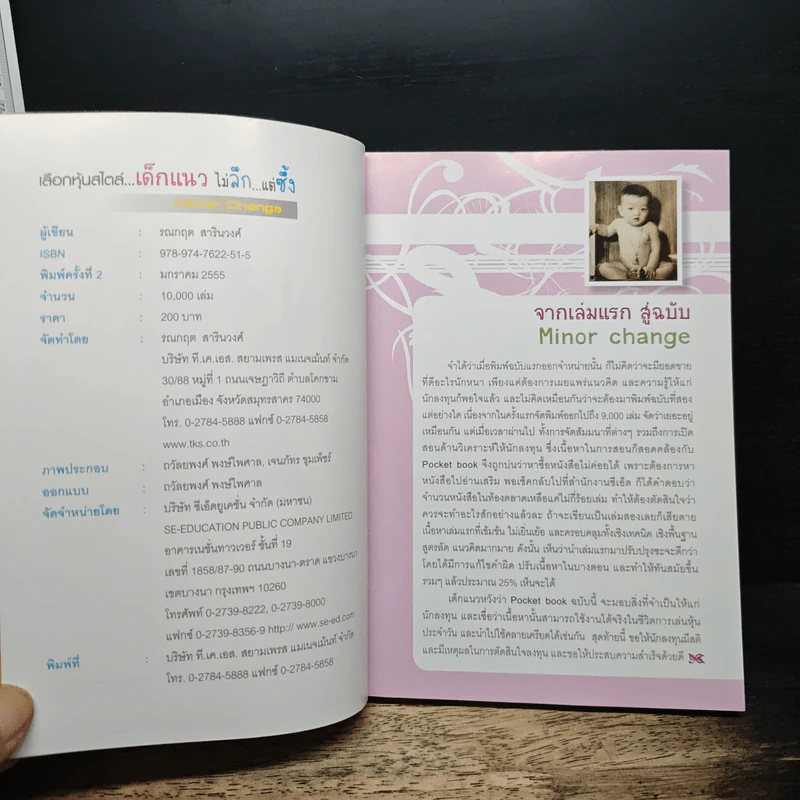 เลือกหุ้นสไตล์...เด็กแนว ไม่ลึก...แต่ซึ้ง
Minor Change
ผู้เขียน : รณกฤต สารินวงศ์
ISBN : 978-974-7622-51-5
พิมพ์ครั้งที่ 2 : มกราคม 2555
จำนวน : 10,000 เล่ม
ราคา : 200 บาท
จัดทำโดย : รณกฤต สารินวงศ์
บริษัท ที.เค.เอส. สยามเพรส แมเนจเม้นท์ จำกัด
30/88 หมู่ที่ 1 ถนนเจษฎาวิถี ตำบลโคกขาม
อำเภอเมือง จังหวัดสมุทรสาคร 74000
โทร. 0-2784-5888 แฟกซ์ 0-2784-5858
www.tks.co.th
ภาพประกอบ : ถวัลยพงศ์ พงษ์ไพศาล, เจนภัทร ชุมเพ็ชร์
ออกแบบ : ถวัลยพงศ์ พงษ์ไพศาล
จัดจำหน่ายโดย : บริษัท ซีเอ็ดยูเคชั่น จำกัด (มหาชน)
SE-EDUCATION PUBLIC COMPANY LIMITED
อาคารเนชั่นทาวเวอร์ ชั้นที่ 19
เลขที่ 1858/87-90 ถนนบางนา-ตราด แขวงบางนา
เขตบางนา กรุงเทพฯ 10260
โทรศัพท์ 0-2739-8222, 0-2739-8000
แฟกซ์ 0-2739-8356-9 http:// www.se-ed.com
พิมพ์ที่ : บริษัท ที.เค.เอส. สยามเพรส แมเนจเม้นท์ จำกัด
โทร. 0-2784-5888 แฟกซ์ 0-2784-5858
จากเล่มแรก สู่ฉบับ
Minor change
จำได้ว่าเมื่อพิมพ์ฉบับแรกออกจำหน่ายนั้น ก็ไม่คิดว่าจะมียอดขาย
ที่ดีอะไรนักหนา เพียงแค่ต้องการเผยแพร่แนวคิด และความรู้ให้แก่
นักลงทุนก็พอใจแล้ว และไม่คิดเหมือนกันว่าจะต้องมาพิมพ์ฉบับที่สอง
แต่อย่างใด เนื่องจากในครั้งแรกจัดพิมพ์ออกไปถึง 9,000 เล่ม จัดว่าเยอะอยู่
เหมือนกัน แต่เมื่อเวลาผ่านไป ทั้งการจัดสัมมนาที่ต่างๆ รวมถึงการเปิด
สอนด้านวิเคราะห์ให้นักลงทุน ซึ่งเนื้อหาในการสอนก็สอดคล้องกับ
Pocket book จึงถูกบ่นว่าหาซื้อหนังสือไม่ค่อยได้ เพราะต้องการหา
หนังสือไปอ่านเสริม พอเช็คกลับไปที่สำนักงานซีเอ็ด ก็ได้คำตอบว่า
จำนวนหนังสือในท้องตลาดเหลือแค่ไม่กี่ร้อยเล่ม ทำให้ต้องตัดสินใจว่า
ควรจะทำอะไรสักอย่างแล้วละ ถ้าจะเขียนเป็นเล่มสองเลยก็เสียดาย
เนื้อหาเล่มแรกที่เข้มข้น ไม่เยิ่นเย้อ และครอบคลุมทั้งเชิงเทคนิค เชิงพื้นฐาน
สูตรลัด แนวคิดมากมาย ดังนั้น เห็นว่านำเล่มแรกมาปรับปรุงซะจะดีกว่า
โดยได้มีการแก้ไขคำผิด ปรับเนื้อหาในบางตอน และทำให้ทันสมัยขึ้น
รวมๆ แล้วประมาณ 25% เห็นจะได้
เด็กแนวหวังว่า Pocket book ฉบับนี้ จะมอบสิ่งที่จำเป็นให้แก่
นักลงทุน และเชื่อว่าเนื้อหานั้นสามารถใช้งานได้จริงในชีวิตการเล่นหุ้น
ประจำวัน และนำไปใช้คลายเครียดได้เช่นกัน สุดท้ายนี้ ขอให้นักลงทุนมีสติ
และมีเหตุผลในการตัดสินใจลงทุน และขอให้ประสบความสำเร็จด้วยดี